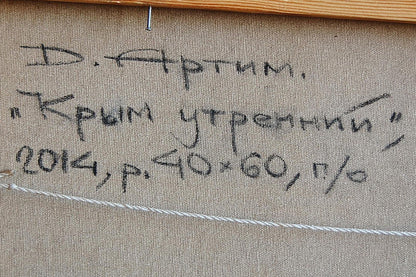 D. Артим.
„Крым утренний",
2014, р. 40×60, п/о